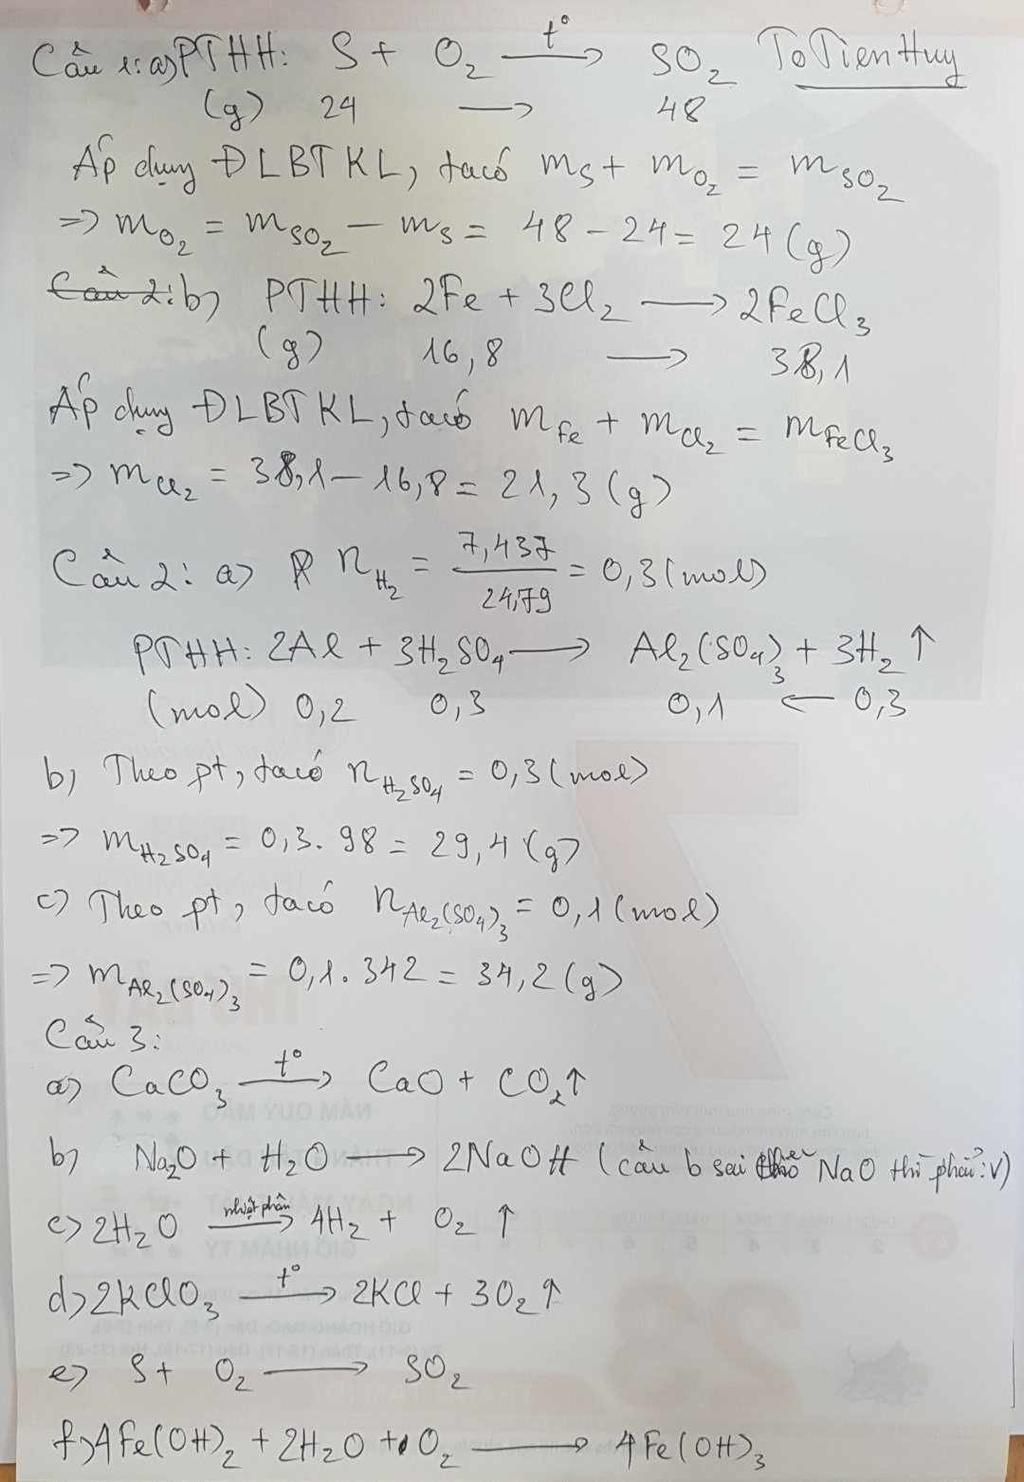 Câu 1: a) PTHH: S + O₂ –t°→ SO₂ ToTienHuy
(g) 24 → 48
Áp dụng ĐLBTKL, ta có m_S + m_O₂ = m_SO₂
=> m_O₂ = m_SO₂ − m_S = 48 − 24 = 24 (g)
Câu 2: b) PTHH: 2Fe + 3Cl₂ → 2FeCl₃
(g) 16,8 → 38,1
Áp dụng ĐLBTKL, ta có m_Fe + m_Cl₂ = m_FeCl₃
=> m_Cl₂ = 38,1 − 16,8 = 21,3 (g)
Câu 2: a) n_H₂ = 7,437/24,79 = 0,3 (mol)
PTHH: 2Al + 3H₂SO₄ → Al₂(SO₄)₃ + 3H₂ ↑
(mol) 0,2 0,3 0,1 ← 0,3
b) Theo pt, ta có n_H₂SO₄ = 0,3 (mol)
=> m_H₂SO₄ = 0,3. 98 = 29,4 (g)
c) Theo pt, ta có n_Al₂(SO₄)₃ = 0,1 (mol)
=> m_Al₂(SO₄)₃ = 0,1. 342 = 34,2 (g)
Câu 3:
a) CaCO₃ –t°→ CaO + CO₂↑
b) Na₂O + H₂O → 2NaOH (câu b sai NaO thì phải :v)
c) 2H₂O –nhiệt phân→ 4H₂ + O₂ ↑
d) 2KClO₃ –t°→ 2KCl + 3O₂↑
e) S + O₂ → SO₂
f) 4Fe(OH)₂ + 2H₂O + O₂ → 4Fe(OH)₃